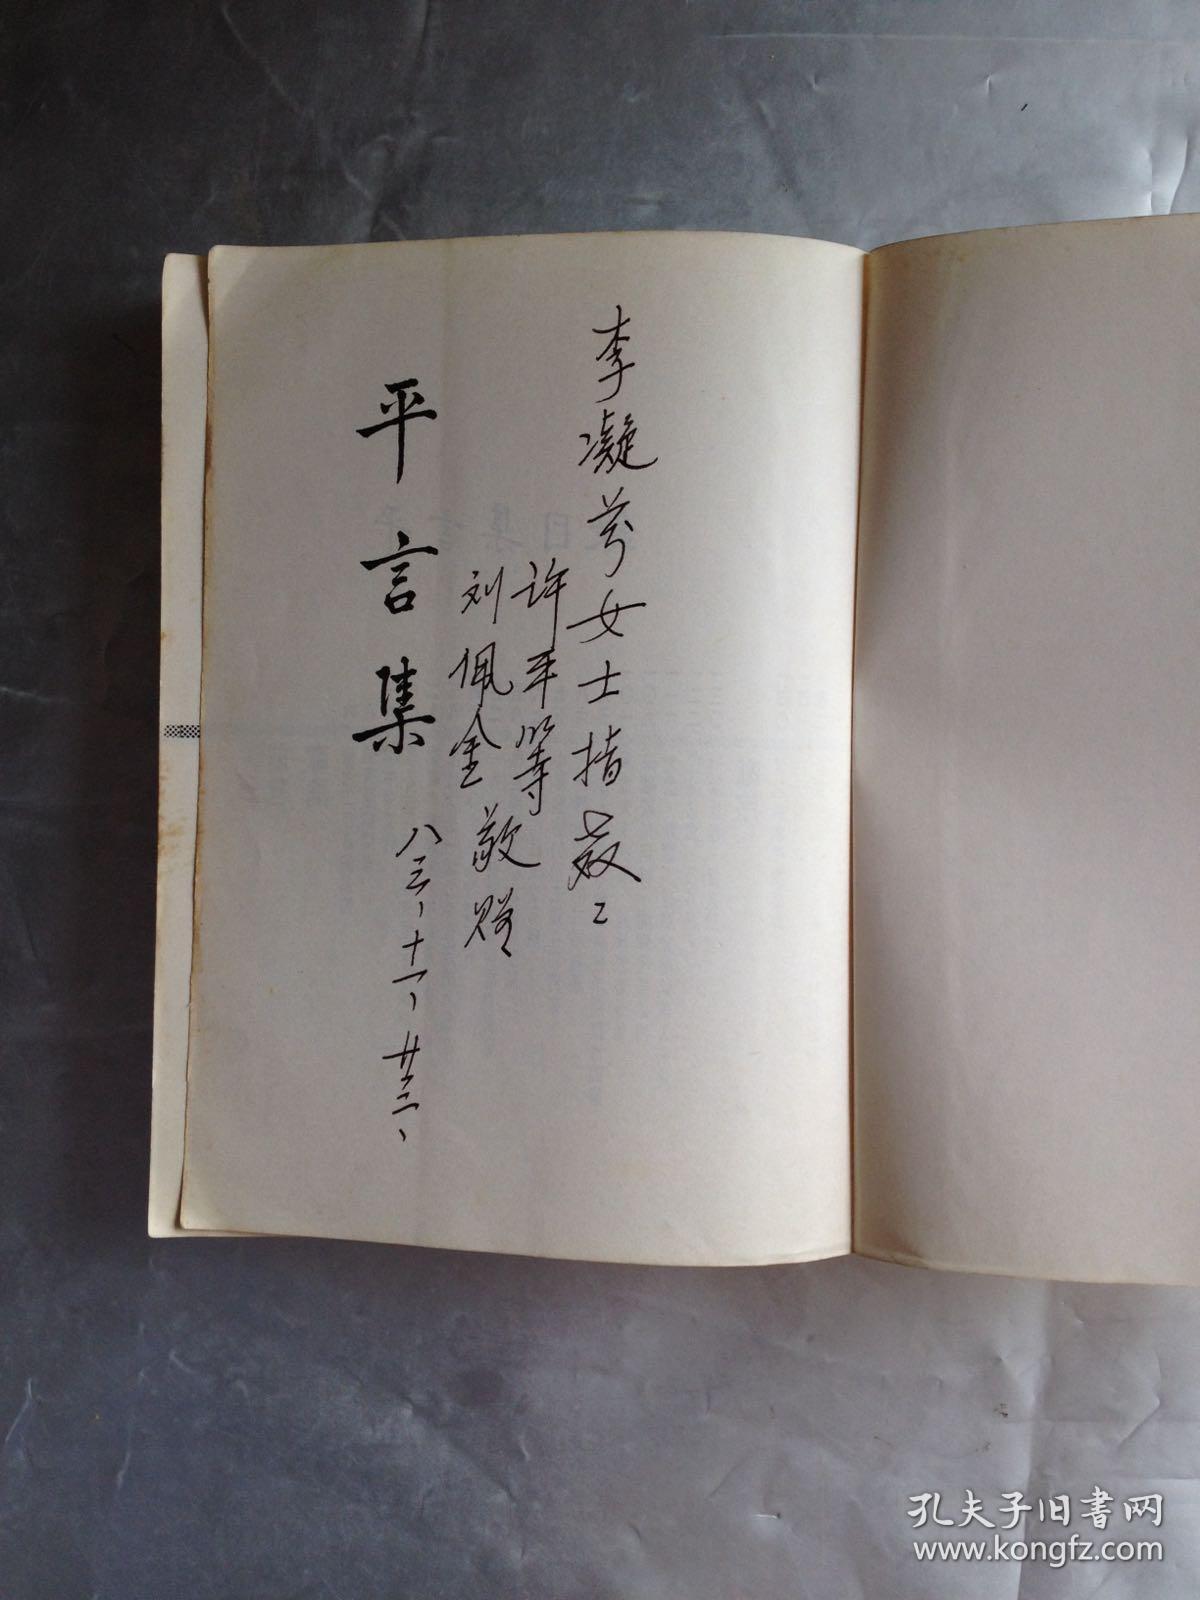 李凝芬女士指教：
许平等
刘佩金敬贈
平言集
八三、十一、廿三、
孔夫子旧书网
www.kongfz.com